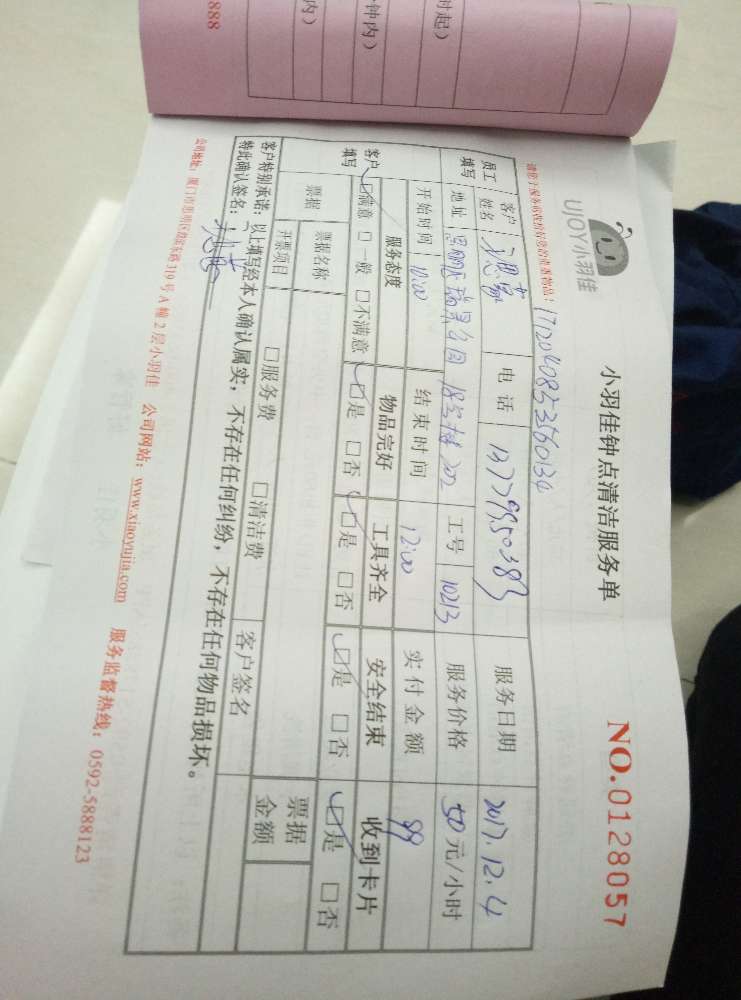 UJOY小羽佳
小羽佳钟点清洁服务单
NO.0128057
员工填写 客户姓名 电话 13779950383 服务日期 2017.12.4
地址 18号楼202 工号 10213 服务价格 50元/小时
开始时间 10:00 结束时间 12:00 实付金额 99
客户填写 服务态度 物品完好 工具齐全 安全结束 收到卡片
☑满意 □一般 □不满意 ☑是 □否 ☑是 □否 ☑是 □否 ☑是 □否
票据 票据名称 □服务费 □清洁费 客户签名 票据金额
开票项目
客户特别承诺:以上填写经本人确认属实,不存在任何纠纷,不存在任何物品损坏。
特此确认签名:
319号A幢2层小羽佳 公司网站:www.xiaoyujia.com 服务监督热线:0592-5888123
888
时起)
钟内)
内)